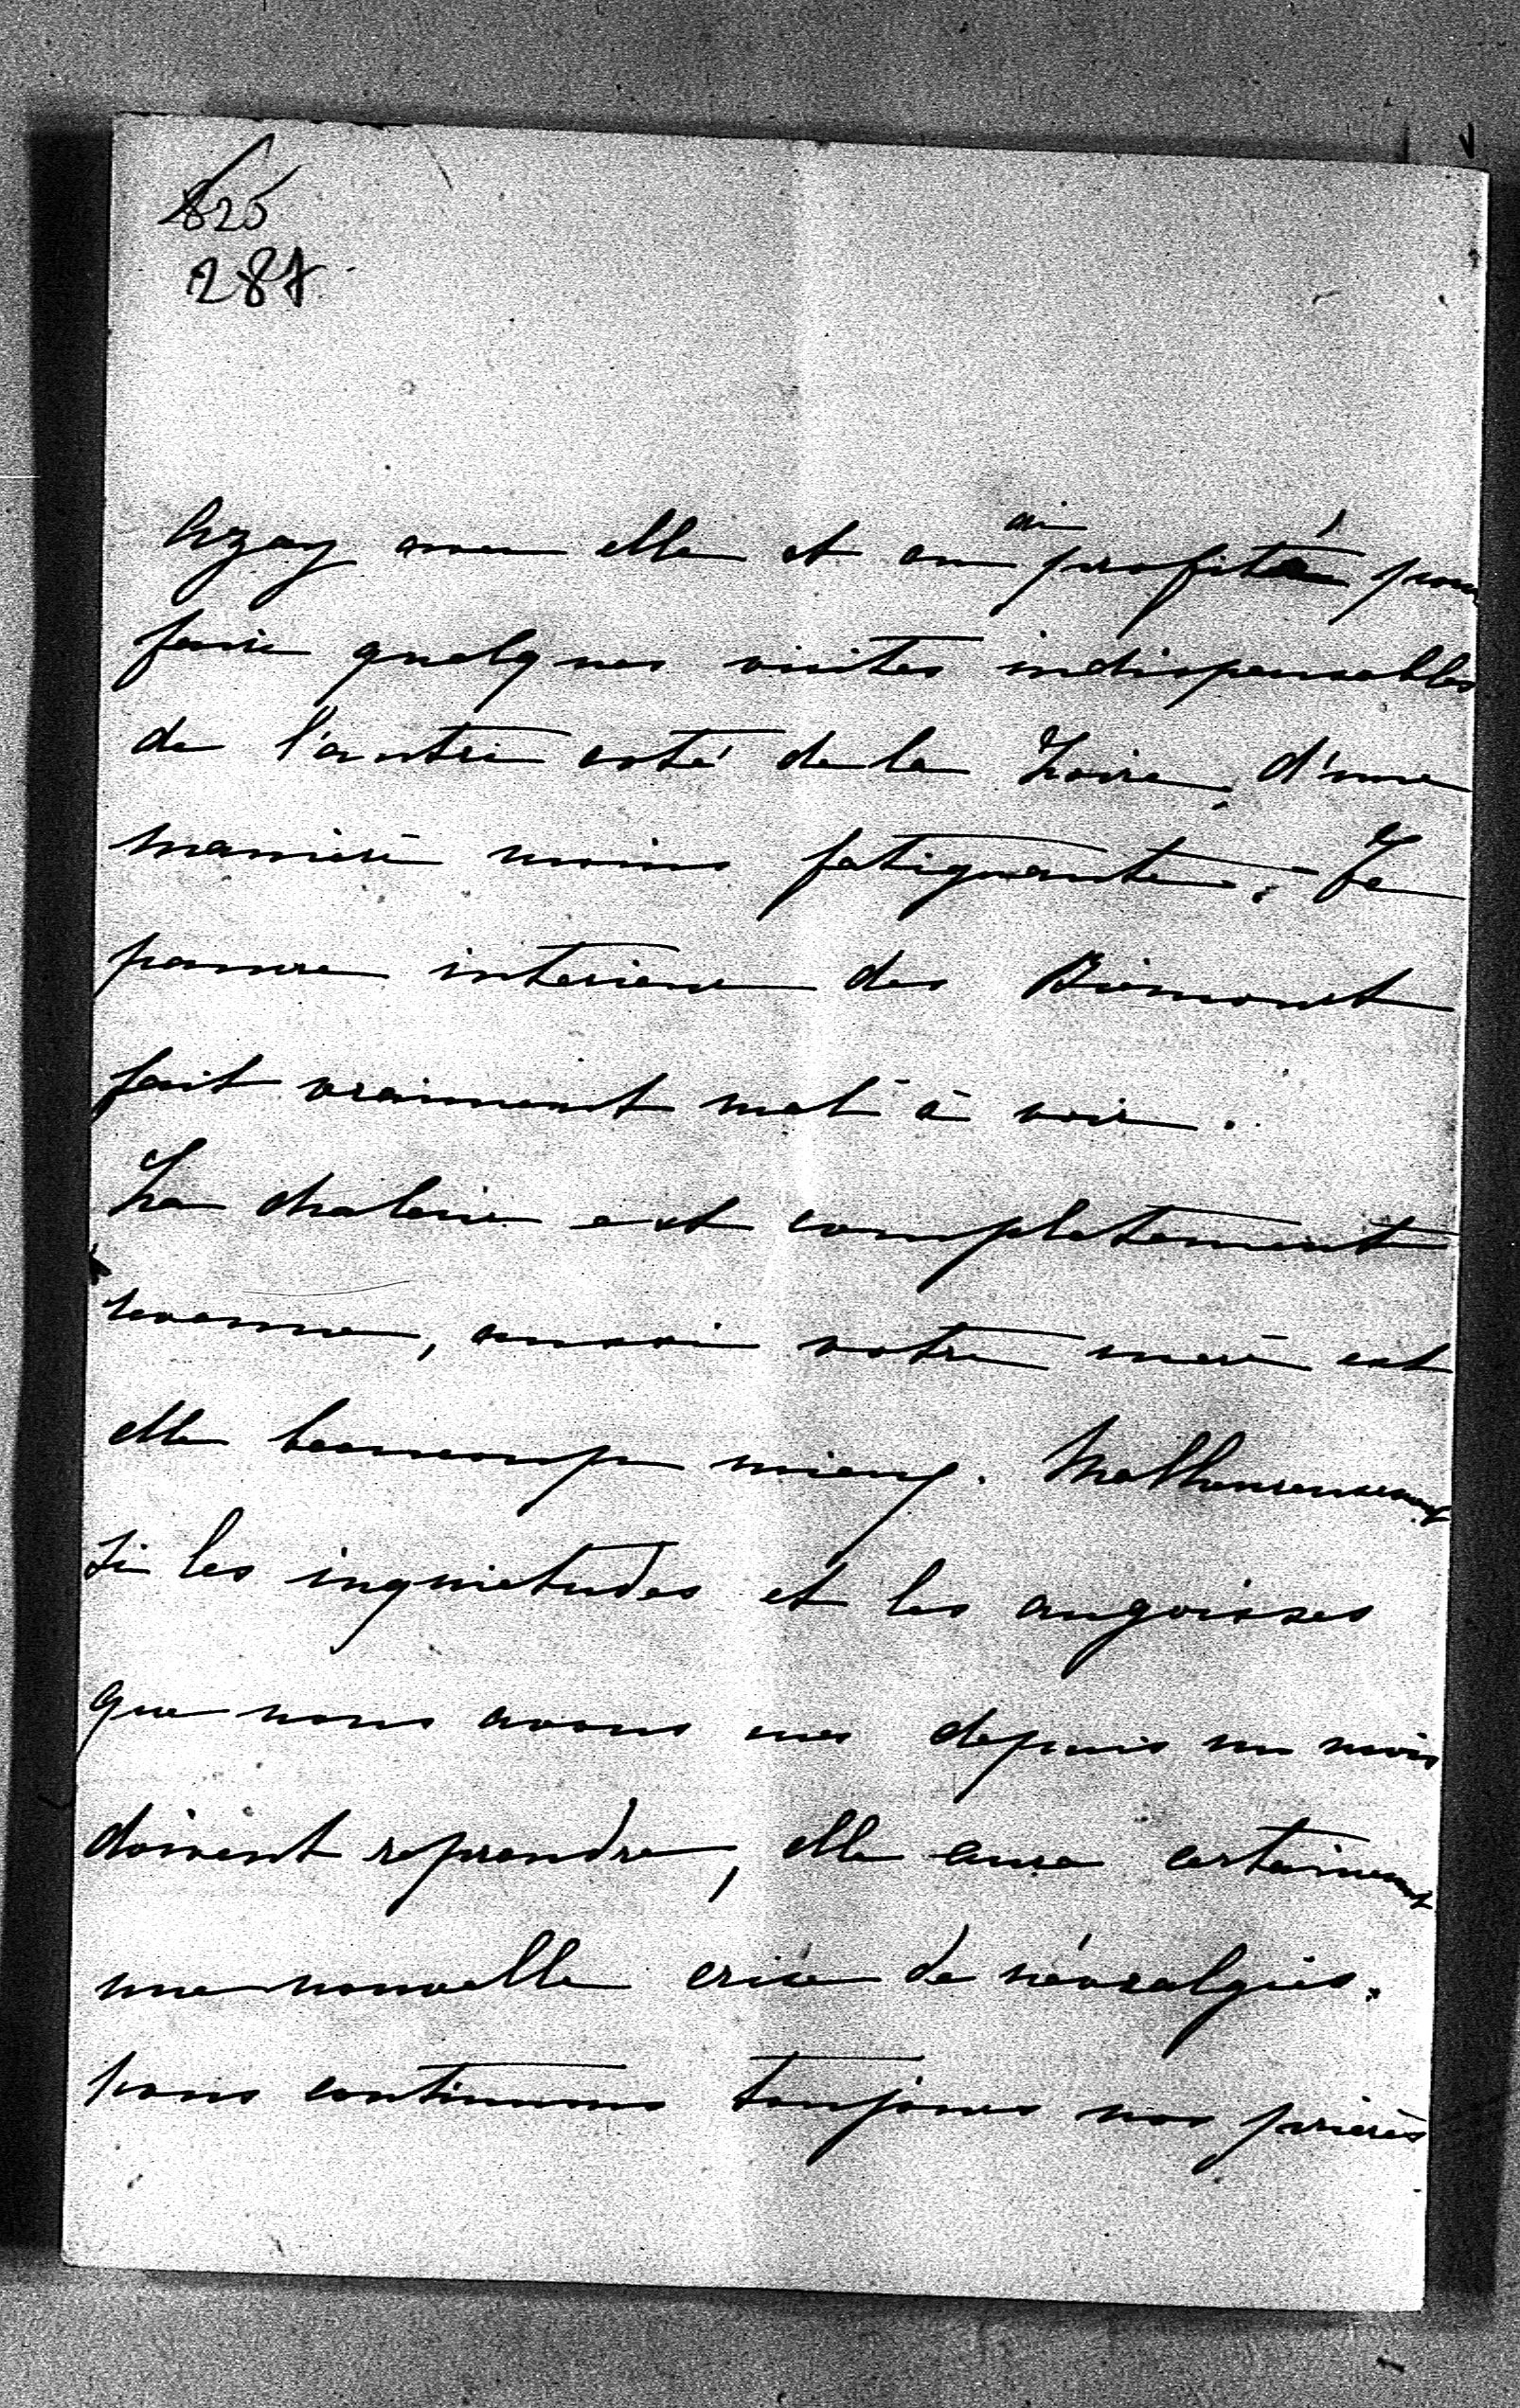 825
287
Azay avec elle et en ai profité pour
faire quelques visites indispensables
de l'autre coté de la Loire, d'une
manière moins fatigante. Le
pauvre interieur des Bimont
fait vraiment mal à voir.
La chaleur est completement
revenue, aussi votre mère est
elle beaucoup mieux. Malheureusement
si les inquietudes et les angoisses
que nous avons eues depuis un mois
doivent reprendre, elle aura certainement
une nouvelle crise de névralgies.
Nous continuons toujours nos prières